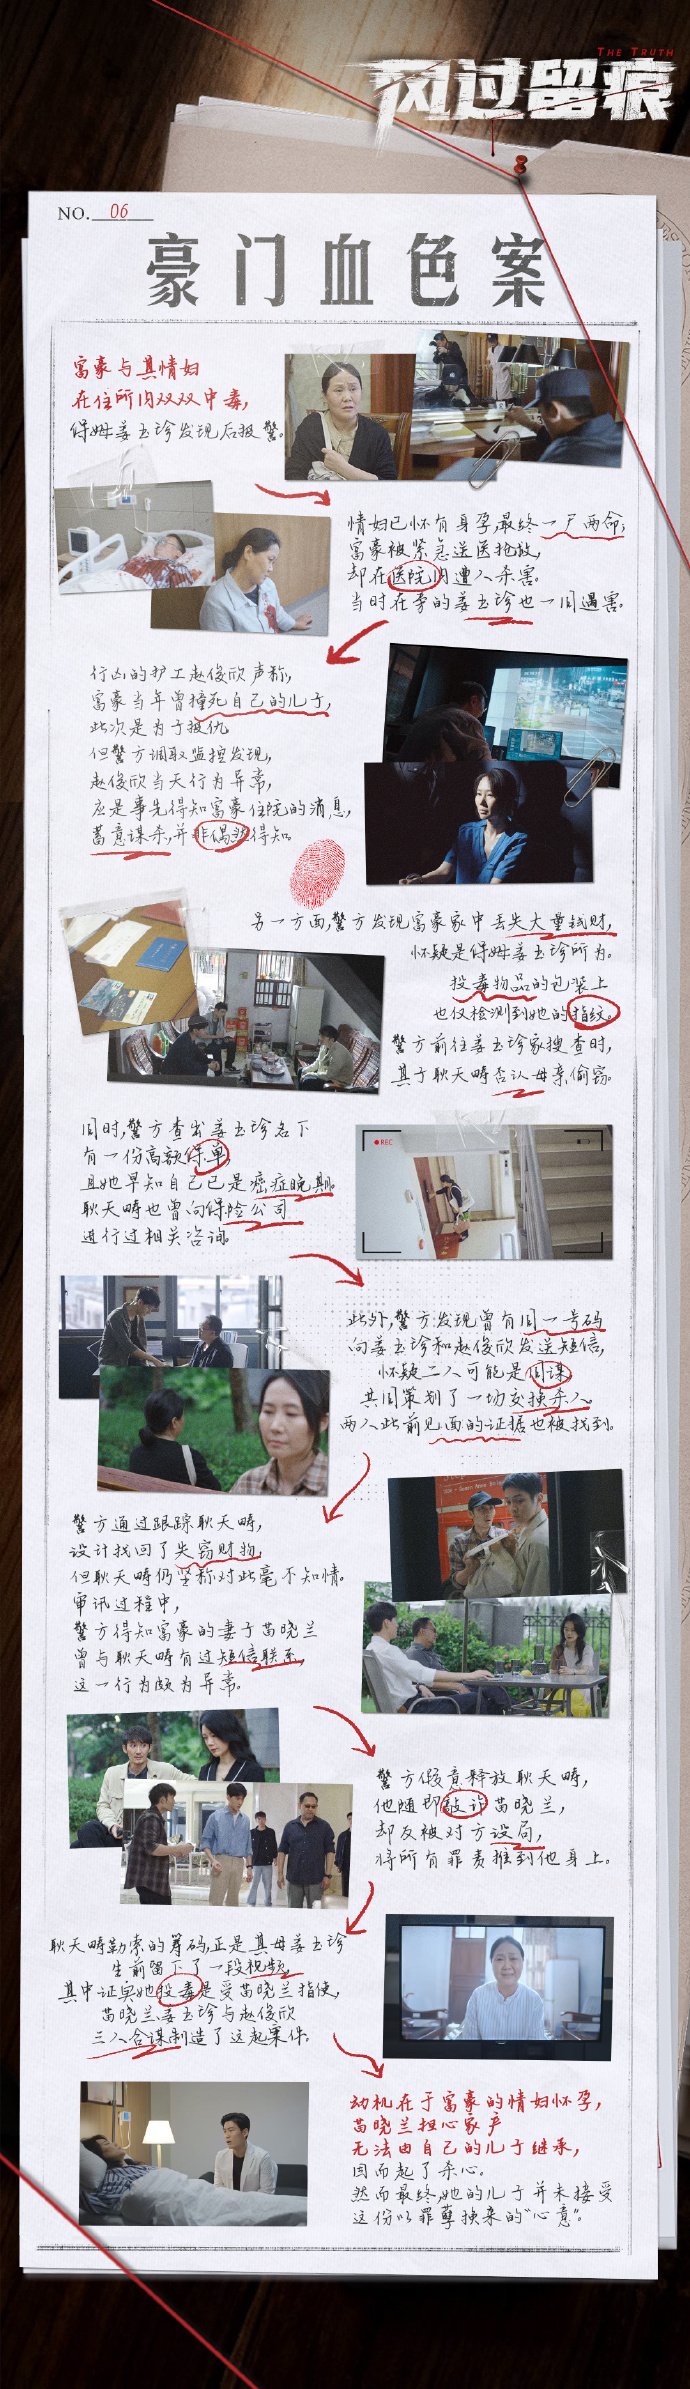 THE TRUTH
风过留痕
NO. 06
豪门血色案
富豪与其情妇
在住所内双双中毒,
保姆姜玉珍发现后报警。
情妇已怀有身孕,最终一尸两命;
富豪被紧急送医抢救,
却在医院内遭人杀害。
当时在旁的姜玉珍也一同遇害。
行凶的护工赵俊欣声称,
富豪当年曾撞死自己的儿子,
此次是为子报仇
但警方调取监控发现,
赵俊欣当天行为异常,
应是事先得知富豪住院的消息,
蓄意谋杀,并非偶然得知。
另一方面,警方发现富豪家中丢失大量钱财,
怀疑是保姆姜玉珍所为。
投毒物品的包装上
也仅检测到她的指纹。
警方前往姜玉珍家搜查时,
其子耿天畴否认母亲偷窃。
同时,警方查出姜玉珍名下
有一份高额保单,
且她早知自己已是癌症晚期。
耿天畴也曾向保险公司
进行过相关咨询。
REC
此外,警方发现曾有同一号码
向姜玉珍和赵俊欣发送短信,
怀疑二人可能是同谋,
共同策划了一场交换杀人。
两人此前见面的证据也被找到。
警方通过跟踪耿天畴,
设计找回了失窃财物,
但耿天畴仍坚称对此毫不知情。
审讯过程中,
警方得知富豪的妻子苗晓兰
曾与耿天畴有过短信联系,
这一行为颇为异常。
警方假意释放耿天畴,
他随即敲诈苗晓兰,
却反被对方设局,
将所有罪责推到他身上。
耿天畴勒索的筹码,正是其母姜玉珍
生前留下了一段视频,
其中证实她投毒是受苗晓兰指使,
苗晓兰、姜玉珍与赵俊欣
三人合谋制造了这起案件。
动机在于富豪的情妇怀孕,
苗晓兰担心家产
无法由自己的儿子继承,
因而起了杀心。
然而最终,她的儿子并未接受
这份以罪孽换来的“心意”。